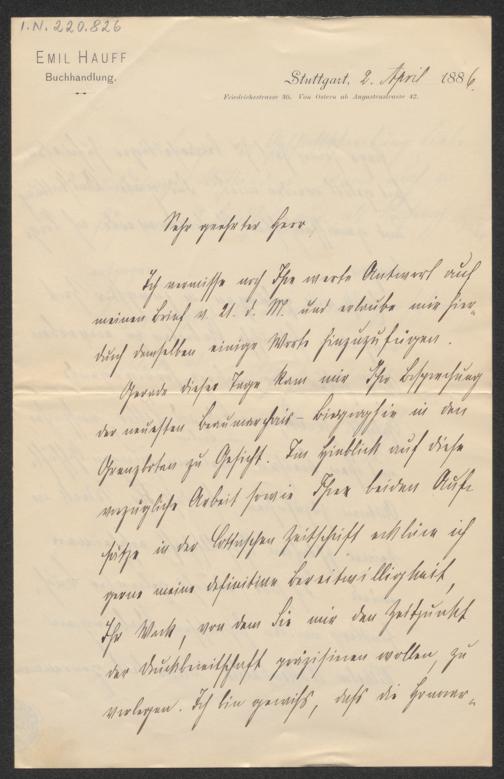 I.N. 220.826
EMIL HAUFF
Buchhandlung.
Stuttgart, 2. April 1886.
Friedrichsstrasse 36. Von Ostern ab Augustenstrasse 42.
Sehr geehrter Herr
Ich vermisse noch Ihre werte Antwort auf
meinen Brief v. 21. d. M. und erlaube mir hier-
durch demselben einige Worte hinzuzufügen.
Gerade dieser Tage kam mir Ihre Besprechung
der neuesten Beaumarchais-Biographie in den
Grenzboten zu Gesicht. Im Hinblick auf diese
vorzügliche Arbeit sowie Ihre beiden Auf-
sätze in der Cottaschen Zeitschrift erkläre ich
gerne meine definitive Bereitwilligkeit,
Ihr Werk, von dem Sie mir den Zeitpunkt
der Druckbereitschaft präzisieren wollen, zu
verlegen. Ich bin gewiß, daß die Honorar-